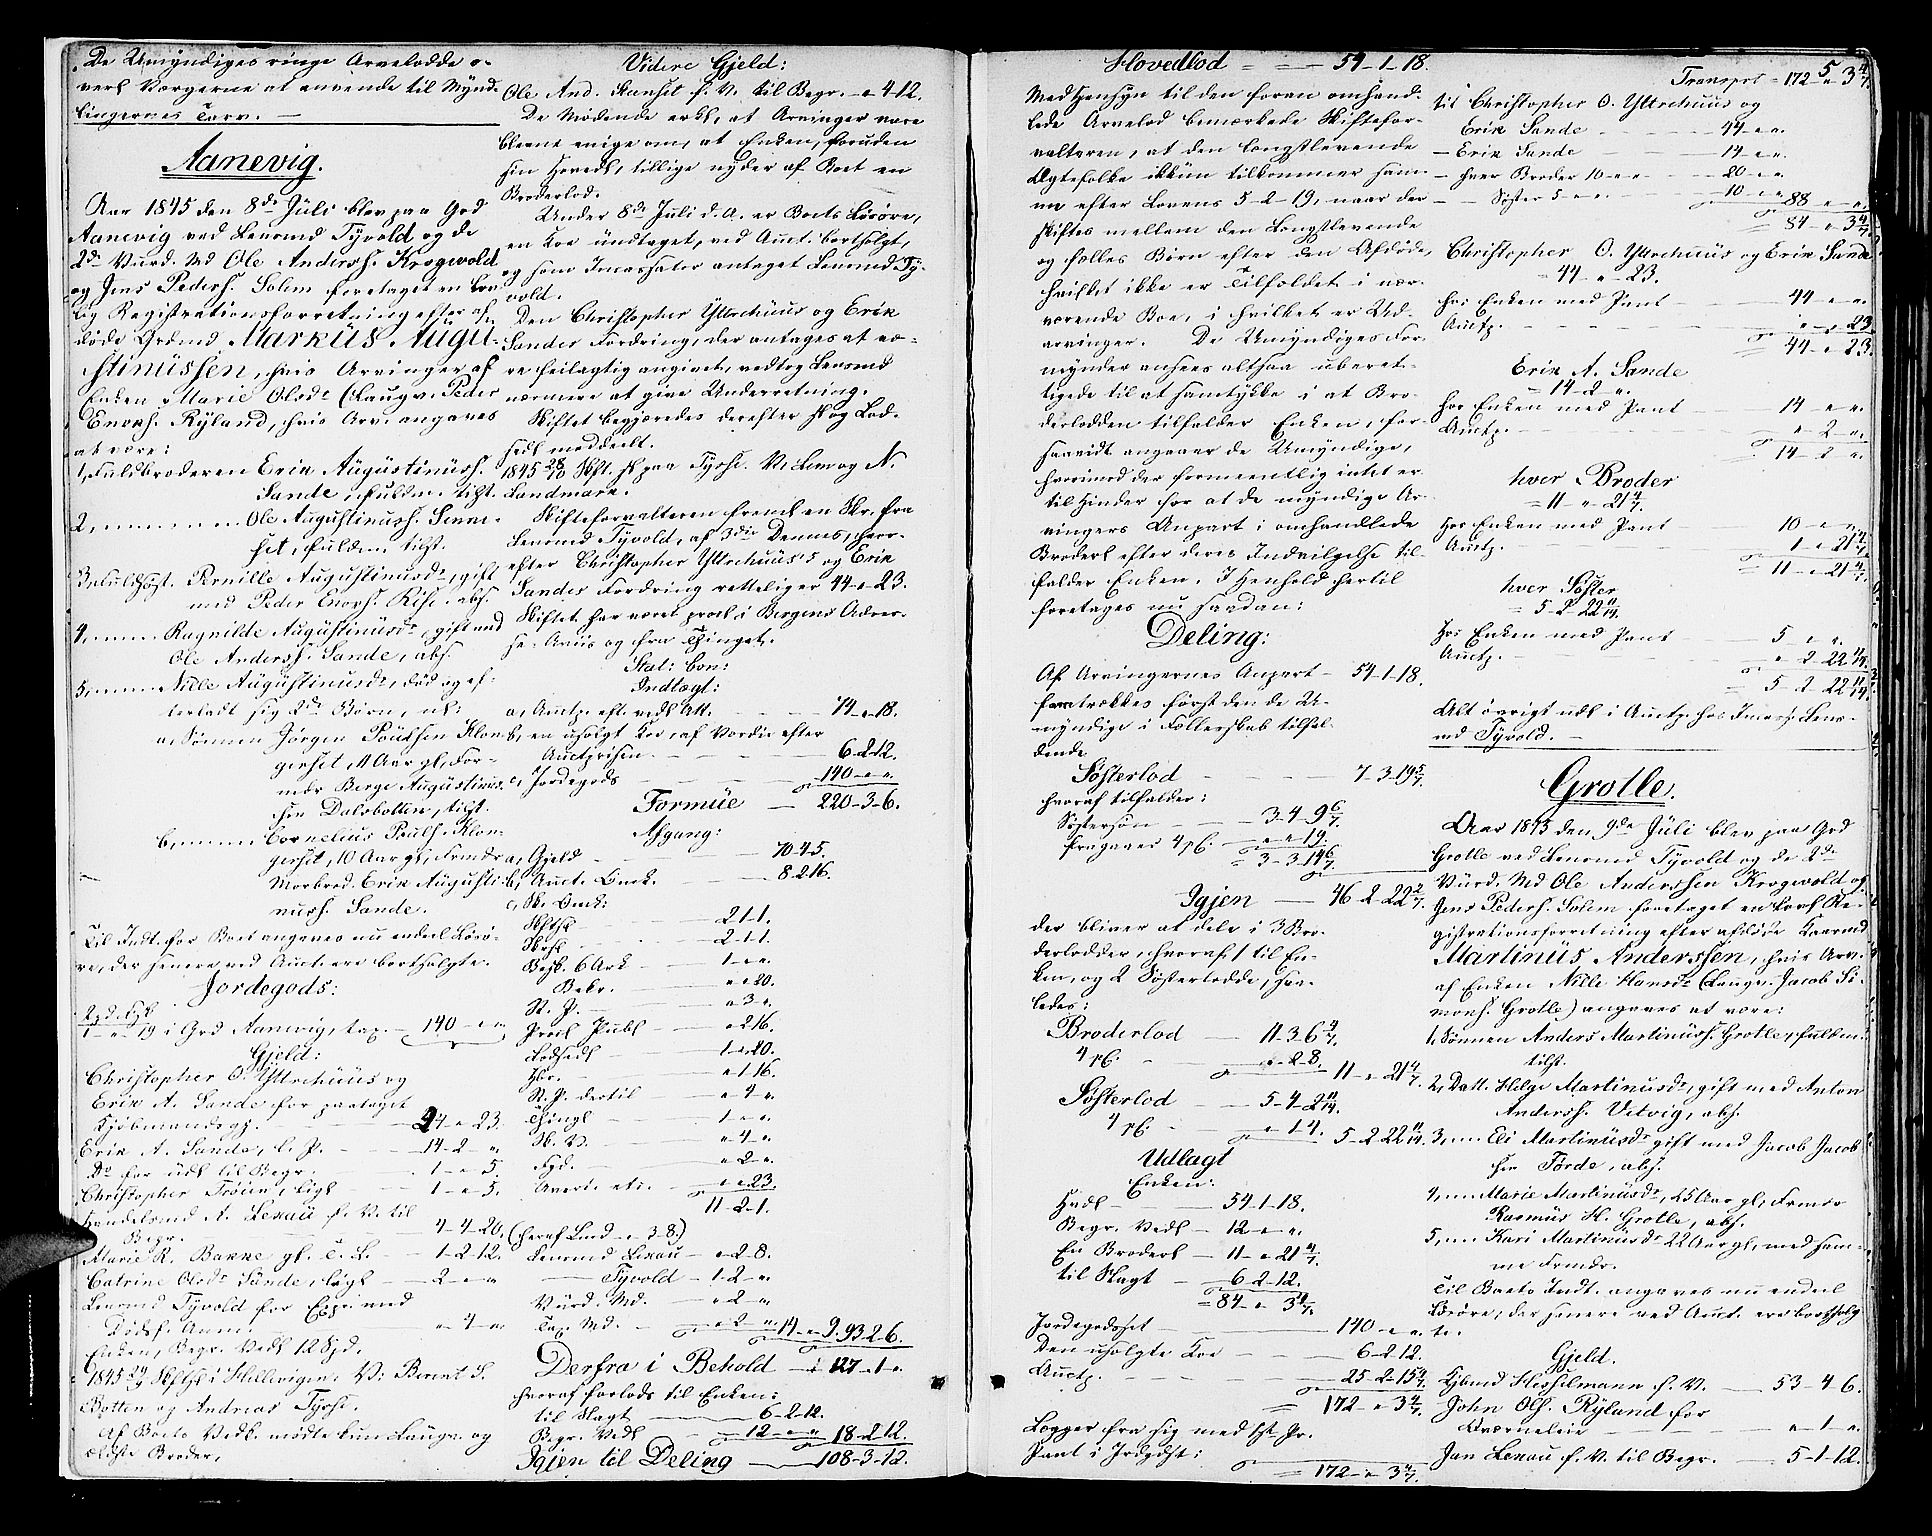 De Umyndiges ringe Arvelodde o-
verl. Værgerne at anvende til Mynd-
lingernes Tarv. —
Aanevig.
Aar 1845 den 8de Juli blev paa Grd
Aanevig ved Lensmd Tyvold og de
2de Vurd. Md Ole Anderss. Krogvold
og Jens Peders. Solem foretaget en
og Registrationsforretning efter af-
døde Grdmd Markus Augu-
stinussen, hvis Arvinger af
Enken Marie Olsdr (Laugv. Peder
Enoks. Ryland, hvis Arv. angaves
at være:
1, Fuldbroderen Erik Augustinuss.
Sande, fuldm. tilst.
2, Ole Augustinuss. Senne-
set, fuldm. tilst.
3, Fuldsøst. Pernille Augustinusdr, gift
med Peder Enoks. Rise, abs.
4, Ragnilde Augustinusdr, gift med
Ole Anderss. Sande, abs.
5, Nille Augustinusdr, død og ef-
terladt sig 2de Børn, nl:
a, Sønnen Jørgen Poulssen Klon-
gerset, 11 Aar gl, For-
mdr Berge Augustinus-
sen Dalsbotten, tilst.
b, Cornelius Pouls. Klon-
gerset, 10 Aar gl, Frmdr
Morbrod. Erik Augusti-
nuss. Sande.
Til Indt. for Boet angaves nu endeel Løsø-
re, der senere ved Auct. ere bortsolgte.
Jordegods:
1 - " - 19 i Grd Aanevig, tax. — 140 - " - "
Gjeld:
Christopher O. Yttrehuus og
Erik A. Sande for paataget
Kjøbmandsgj. 44 - " - 23.
Erik A. Sande, l. P. 14 - 2 - "
Do for udl. til Begr. 1 - " - 5
Christopher Troien, ligl. 1 - " - 5.
Handelsmd A. Lexau f. V. til
Begr. 4 - 4 - 20.
Marie R. Bakke gl. T. L. 1 - 2 - 12.
Catrine Olsdr Sande, ligl. 2 - " - "
Lensmd Tyvold for Exp. med
Dødsf. Anm. " - 4 - "
Enken, Begr. Vedl. 12 Spd.
i Hillevigen. V: Berent S.
Botten og Andreas Tysse.
Af Boets Vedk. mødte kun Laugv. og
ældste Broder.
Videre Gjeld:
Ole And. Ranset f. V. til Begr. — " 4 - 12.
De Mødende erkl. at Arvinger vare
blevne enige om, at Enken, foruden
sin Hovedl. tillige nyder af Boet en
Broderlod.
Under 8de Juli d. A. er Boets Løsøre,
en Koe undtaget, ved Auct. bortsolgt,
og som Incassator antaget Lensmd Ty-
vold.
Den Christopher Yttrehuus og Erik
Sandes Fordring, der antages at væ-
re feilagtig angivet, vedtog Lensmd
nærmere at give Underretning.
Skiftet begjæredes derefter sl. og Lod-
sedl. meddeelt.
1845 28/10 Skft. sl. paa Tysse. V. Lem og N.
Landmark.
Skifteforvalteren freml. en Skr. fra
Lensmd Tyvold, af 3die Dennes, hvor-
efter Christopher Yttrehuus's og Erik
Sandes Fordring retteligen 44 - " - 23.
Skiftet har været procl. i Bergens Adres-
se-Aviis og fra Thinget.
Stat: bon:
Indtægt:
a, Auctp. eft. vedl. Att. 74 - " - 18.
b, en usolgt Koe, af Værdie efter
Auctprisen. 6 - 2 - 12.
c, Jordegods 140 - " - "
Formue — 220 - 3 - 6.
Afgang:
a, Gjeld 70 - 4 - 5.
b, Auct. Omk. 8 - 2 - 16.
c, Sk. Omk:
Skftsl. 2 - 1 - 1.
Skrsl. 2 - 1 - 1.
Besk. 6 Ark 1 - " - "
Bekr. " - " - 20.
St. P. " - 3 - "
Procl. Publ. " - 2 - 16.
Lodsedl. 1 - " - 20.
Hbr. " - 1 - 16.
St. P. dertil " - 4 - "
Thingl. 1 - " - "
Sk. V. " - 4 - "
Fgd. " - 2 - "
Avert. etc. " - " - 23.
11 - 2 - 1.
(heraf Lmd - " - 3 - 8.)
Lensmd Lexau — " - 2 - 8.
— Tyvold — 1 - 2 - "
Vurd. Md. — " - 2 - "
Tax. Md. — " - 2 - " 14 - " - 9. 93 - 2 - 6.
Derfra i Behold — 127 - 1 - "
hvoraf forlods til Enken:
til Slagt 6 - 2 - 12.
Begr. Vedl. 12 - " - " 18 - 2 - 12.
Igjen til Deling — 108 - 3 - 12.
Hovedlod = — 54 - 1 - 18.
Med Hensyn til den foran omhand-
lede Arvelod bemærkede Skiftefor-
valteren, at den længstlevende
Ægtefolke ikkun tilkommer sam-
me efter Lovens 5-2-19, naar der
skiftes mellem den Længstlevende
og fælles Børn efter den Afdøde,
hvilket ikke er Tilfældet i nær-
værende Boe, i hvilket er Ud-
arvinger. De Umyndiges For-
mynder ansees altsaa uberet-
tigede til at samtykke i at Bro-
derlodden tilfalder Enken, for-
saavidt angaaer de Umyndige,
hvorimod der formeentlig intet er
til Hinder for at de myndige Ar-
vingers Anpart i omhandlede
Broderl. efter deres Indvilgelse til-
falder Enken. I Henhold hertil
foretages nu saadan:
Deling:
Af Arvingernes Anpart — 54 - 1 - 18.
fratrækkes først den de U-
myndige i Fællesskab tilfal-
dende
Søsterlod 7 - 3 - 19 5/7.
hvoraf tilfalder:
Søstersøn 3 - 4 - 9 6/7.
fragaaer 4 pC. " - " - 19.
= 3 - 3 - 14 6/7.
Igjen — 46 - 2 - 22 2/7.
der bliver at dele i 3 Bro-
derlodder, hvoraf 1 til En-
ken, og 2 Søsterlodde, saa-
ledes:
Broderlod — 11 - 3 - 6 4/7.
4 pC. " - 2 - 8. 11 - " - 21 4/7.
Søsterlod — 5 - 4 - 2 11/14.
4 pC. " - 1 - 4. 5 - 2 - 22 11/14.
Udlagt
Enken:
Hvdl. 54 - 1 - 18.
Begr. Vedl. — 12 - " - "
En Broderl. — 11 - " - 21 4/7.
til Slagt — 6 - 2 - 12.
= 84 - " - 3 4/7.
Jordegodset 140 - " - "
Den usolgte Koe 6 - 2 - 12.
Auctp. 25 - 2 - 15 4/7.
= 172 - " - 3 4/7.
Lægger fra sig med 1st Pr.
Pant i Jrdgdst:
= 172 - " - 3 4/7.
Transport - 172 - " - 3 4/7.
til Christopher O. Yttrehuus og
Erik Sande 44 - " - "
— Erik Sande 14 - " - "
— hver Broder 10 - " - " 20 - " - "
— Søster 5 - " - " 10 - " - "
88 - " - "
= 84 - " - 3 4/7.
Christopher O. Yttrehuus og Erik Sande
= 44 - " - 23.
hos Enken med Pant 44 - " - "
Auctp. " - " - 23
= 44 - " - 23.
Erik A. Sande
= 14 - 2 - "
hos Enken med Pant 14 - " - "
Auctp. " - 2 - "
= 14 - 2 - "
hver Broder
= 11 - " - 21 4/7.
Hos Enken med Pant 10 - " - "
Auctp. 1 - " - 21 4/7.
= 11 - " - 21 4/7.
hver Søster
= 5 - 2 - 22 11/14.
Hos Enken med Pant 5 - " - "
Auctp. " - 2 - 22 11/14.
= 5 - 2 - 22 11/14.
Alt øvrigt udl. i Auctp. hos Incass. Lens-
md Tyvold. —
Grotle.
Aar 1843 den 9de Juli blev paa Grd
Grotle ved Lensmd Tyvold og de 2de
Vurd. Md Ole Anderssen Krogvold og
Jens Peders. Solem foretaget en Re-
gistrationsforretning efter afdøde Kaarmd
Martinus Anderssen, hvis Arv.
af Enken Nille Hansdr (Laugv. Jacob Si-
mons. Grotle) angaves at være:
1, Sønnen Anders Martinuss. Grotle, fuldm.
tilst.
2, Datt. Helge Martinusdr, gift med Anton
Anderss. Vetvig, abs.
3, Eli Martinusdr gift med Jacob Jacob-
sen Førde, abs.
4, Marie Martinusdr, 25 Aar gl, Frmdr
Rasmus H. Grotle, abs.
5, Kari Martinusdr 22 Aar gl, med sam-
me Frmdr.
Til Boets Indt. angaves nu endeel
Løsøre, der senere ved Auct. ere bortsolg-
te.
Gjeld.
Kjbmd Hesselmann f. V. — 53 - 4 - 6.
John Ols. Ryland for
Qværneleie " - 1 - "
Jan Lexau f. V. til Begr. — 5 - 1 - 12.